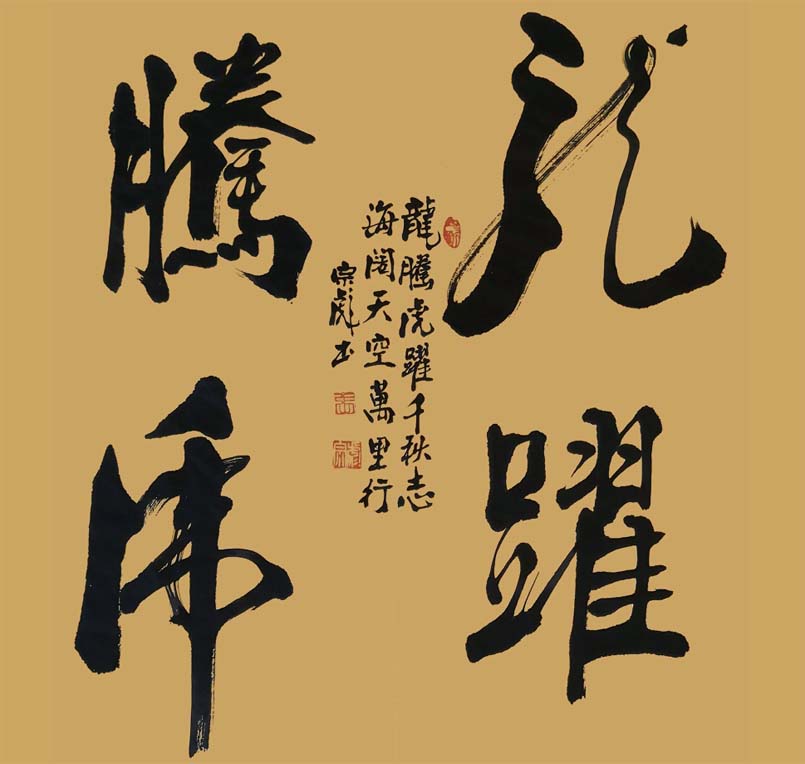 龍騰
虎躍
龍騰虎躍千秋志
海闊天空萬里行
宗彪书